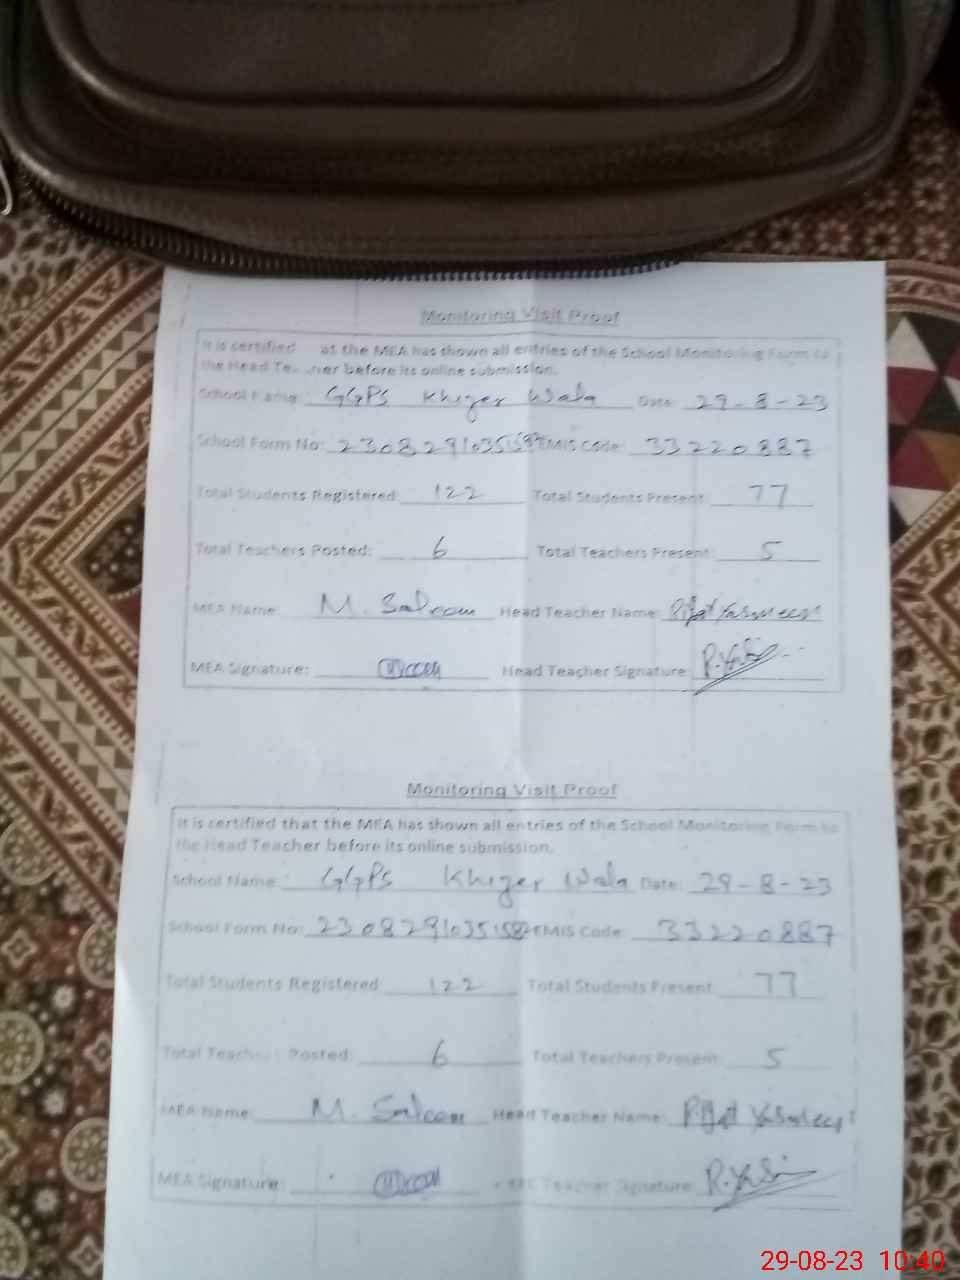 Monitoring Visit Proof
It is certified at the MEA has shown all entries of the School Monitoring Form to
the Head Te ner before its online submission.
School Name: GGPS Khizer Wala Date: 29-8-23
School Form No: 2308291035158 EMIS Code: 33220887
Total Students Registered: 122 Total Students Present: 77
Total Teachers Posted: 6 Total Teachers Present: 5
MEA Name: M. Saleem Head Teacher Name: Riffat Yasmeen
MEA Signature: Head Teacher Signature:
Monitoring Visit Proof
It is certified that the MEA has shown all entries of the School Monitoring Form to
the Head Teacher before its online submission.
School Name: GGPS Khizer Wala Date: 29-8-23
School Form No: 2308291035158 EMIS Code: 33220887
Total Students Registered 122 Total Students Present 77
Total Teach Posted: 6 Total Teachers Present: 5
MEA Name: M. Saleem Head Teacher Name: Riffat Yasmeen
MEA Signature: Teacher Signature:
29-08-23 10:40